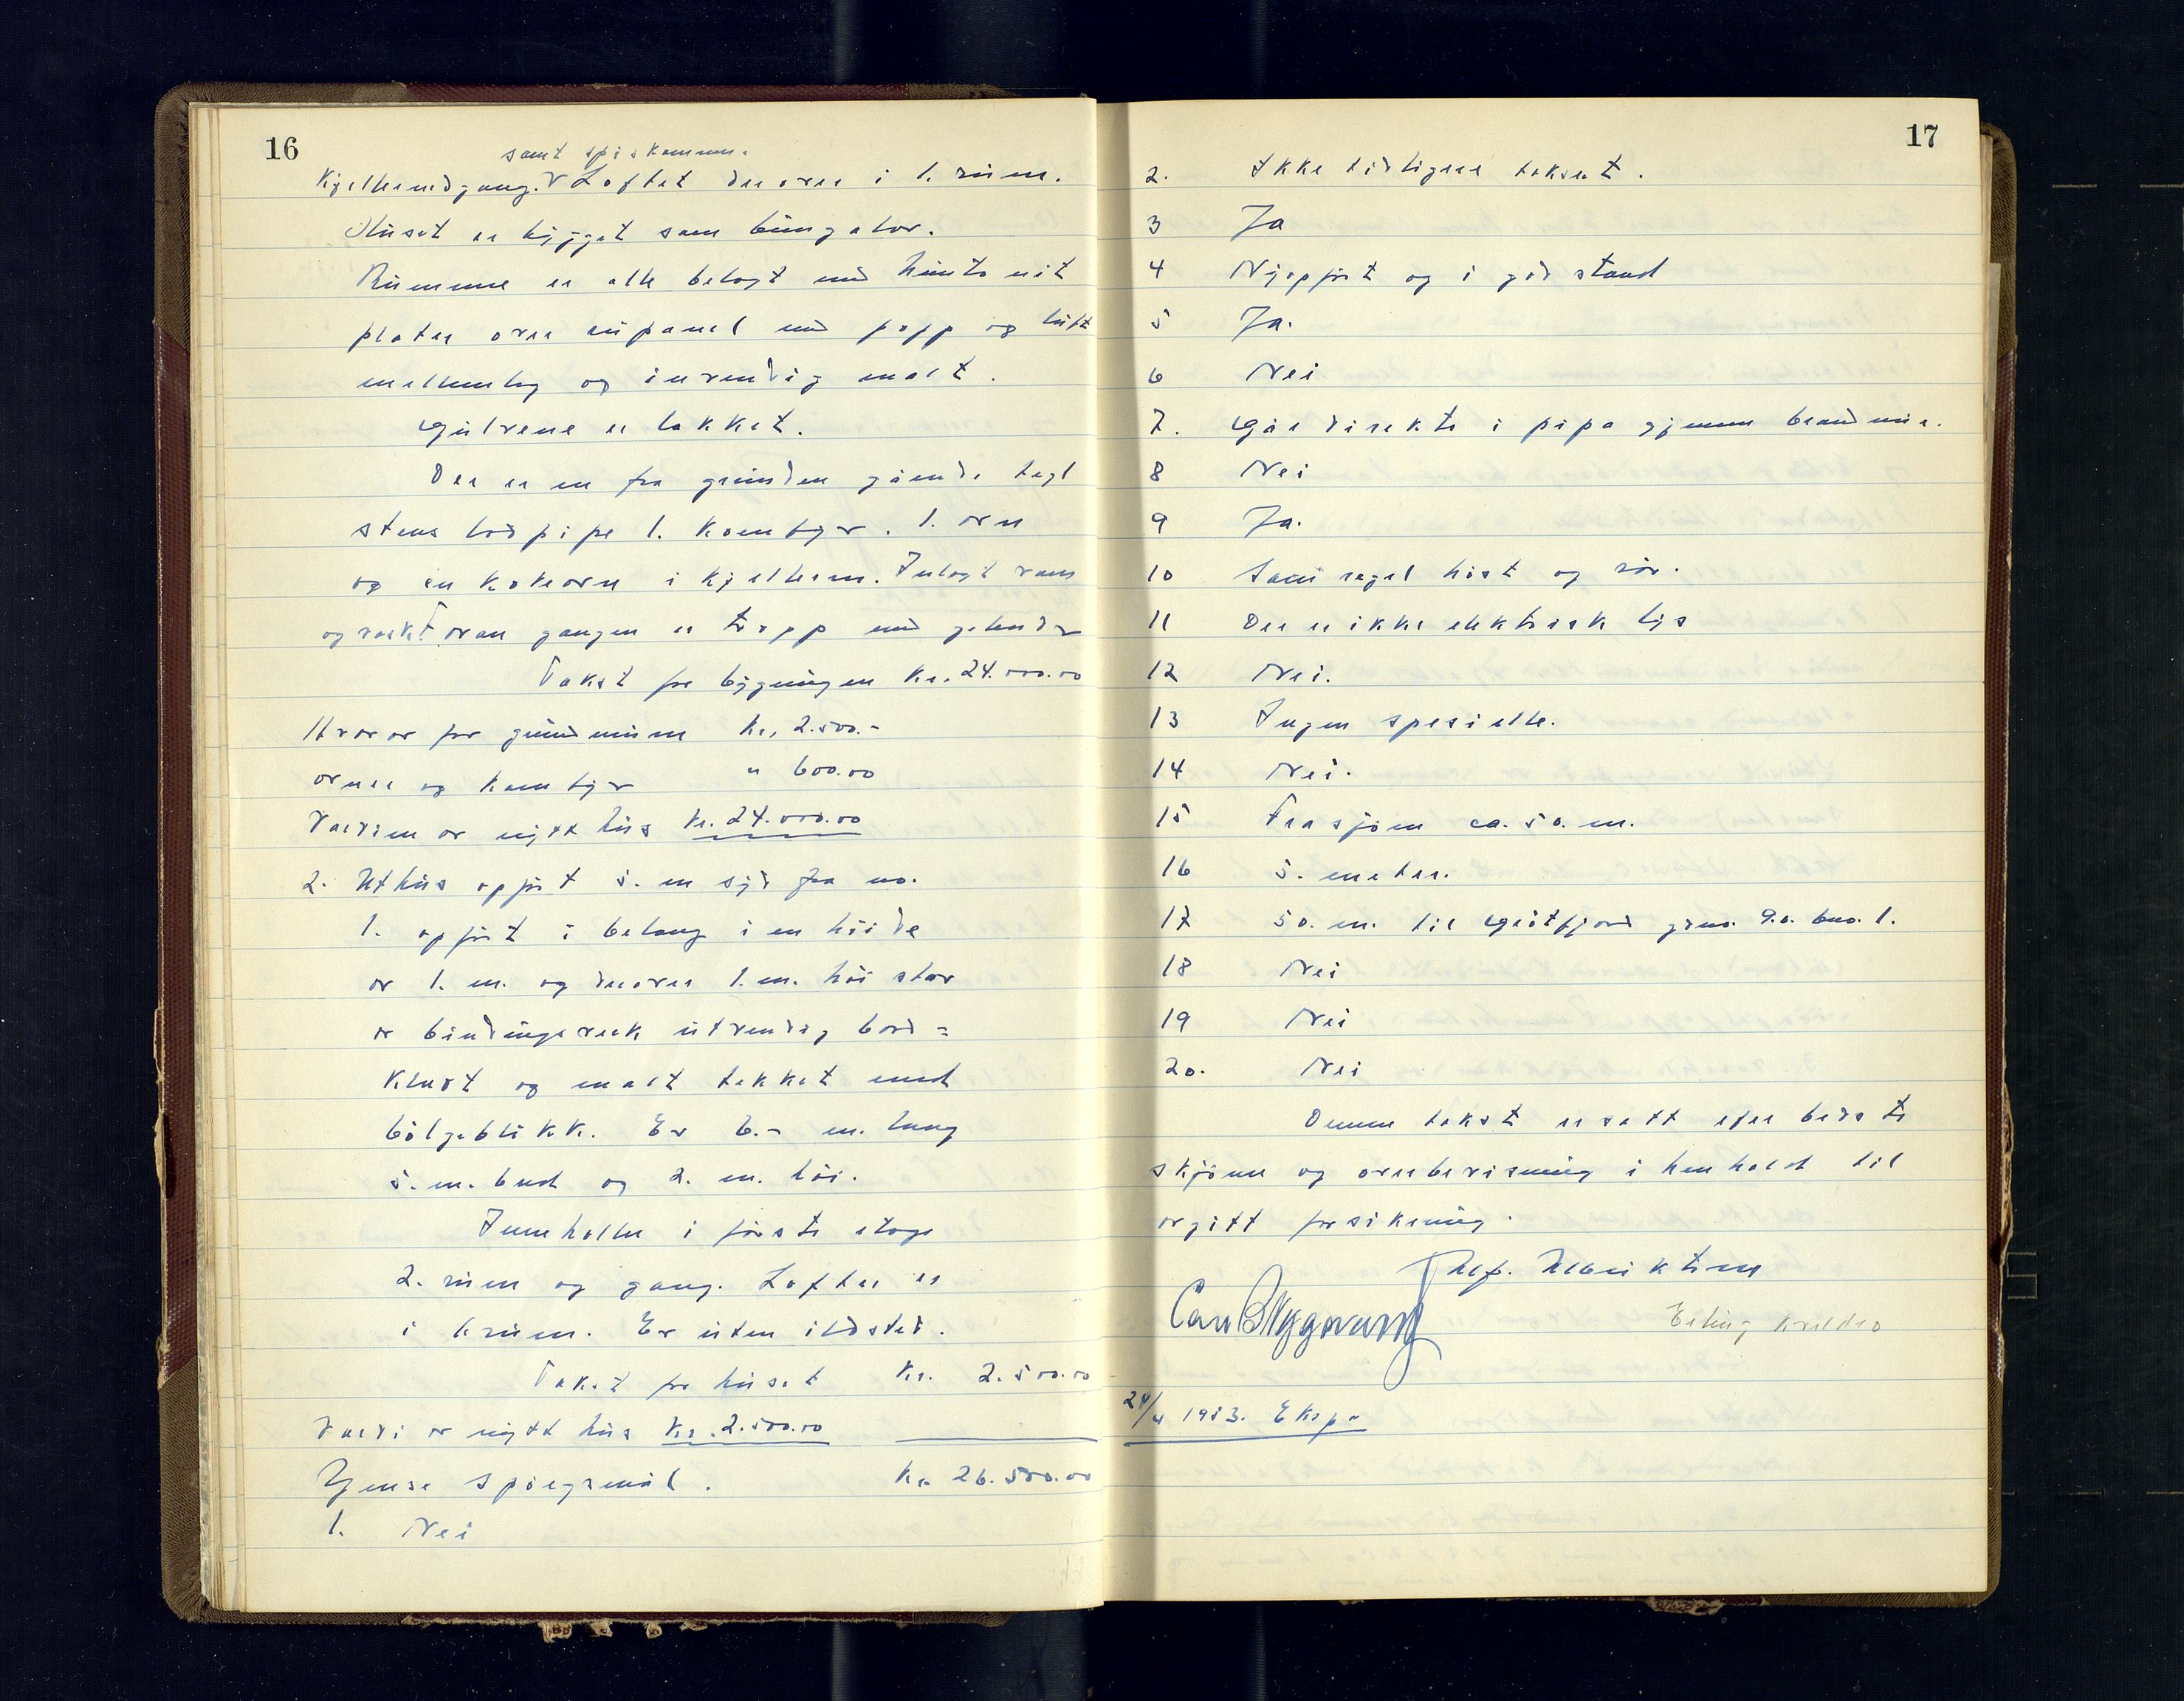 16
samt spiskammer.
Kjellernedgang. V Loftet derover i 1. rum.
Huset er bygget som bungalov.
Rummene er alle belagt med huntonit
plater over rupanel med papp og luft
mellemlag og invendig malt.
Gulvene er lakket.
Der er en fra grunden gående tegl
stens lodpipe 1. komfyr. 1. ovn
og en koksovn i kjelleren. Inlagt vann
og vask. Foran gangen er trapp med gelender
Takst for bygningen Kr. 24.000.00
Hvorav for grundmuren Kr. 2.500.-
ovner og komfyr " 600.00
Værdien av nytt hus Kr. 24.000.00
2. Uthus opført 5. m syd fra no.
1. opført i betong i en höide
av 1. m. og derover 1. m. höi stav
av bindingsverk utvendig bord =
klædt og malt tekket med
bölgeblikk. Er 6.- m. lang
5. m. bred og 2. m. höi.
Inneholder i første etage
2. rum og gang. Loftet er
i 1. rum. Er uten ildsted.
Takst for huset Kr. 2.500.00
Værdi av nytt hus Kr. 2.500.00
Gense spörgsmål. Kr. 26.500.00
1. Nei
17
2. Ikke tidligere taksert.
3 Ja
4 Nyopført og i god stand
5 Ja.
6 Nei
7. Går direkte i pipa gjennem brandmur.
8 Nei
9 Ja.
10 Som regel höst og vår.
11 Der er ikke elektrisk lys
12 Nei.
13 Ingen spesielle.
14 Nei.
15 Fra sjöen ca. 50. m.
16 5. meter.
17 50. m. til Gråtfjord gno. 90. bno. 1.
18 Nei
19 Nei
20. Nei
Denne takst er satt efter bedste
skjönn og overbevisning i henhold til
avgitt forsikring.
Alf. Albriktsen
Erling Kvaldeo
24/4 1953. Eksp.